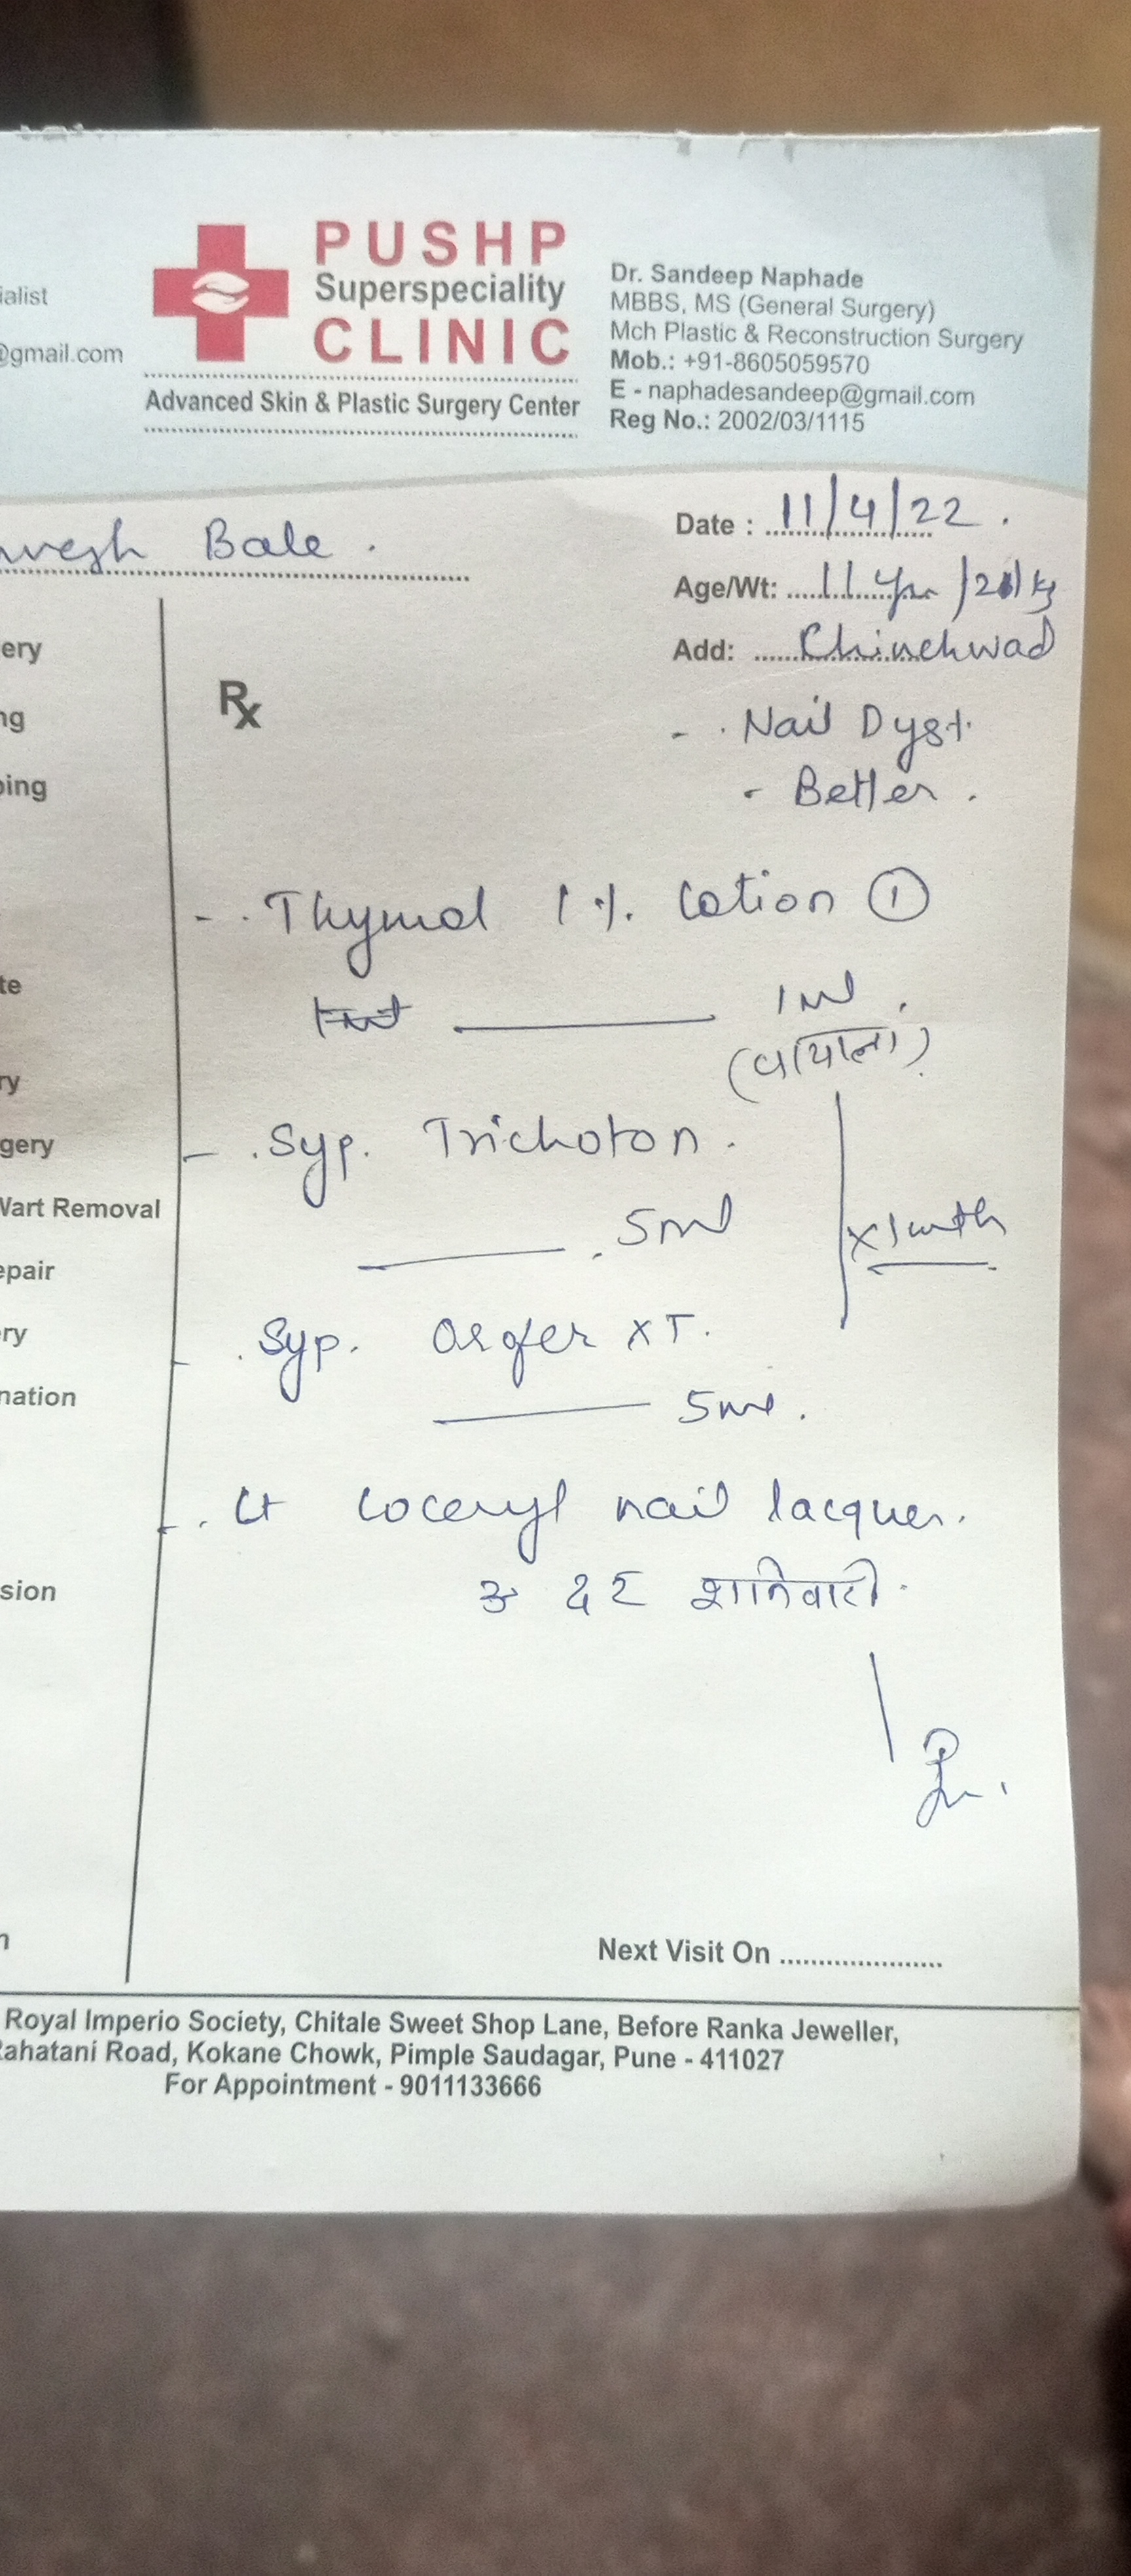 PUSHP
Superspeciality
CLINIC
Advanced Skin & Plastic Surgery Center
ialist
@gmail.com
Dr. Sandeep Naphade
MBBS, MS (General Surgery)
Mch Plastic & Reconstruction Surgery
Mob.: +91-8605059570
E - naphadesandeep@gmail.com
Reg No.: 2002/03/1115
Bale.
Date : 11/4/22.
Age/Wt: 11 yr /
Add: Chinchwad
ery
ng
ping
te
ry
gery
Wart Removal
epair
ry
nation
sion
n
Rx
- Nail Dyst.
- Better.
- Thymol 1%. Lotion ①
- Syp. Trichoton.
5ml
x 1 mth
- Syp. Orofer XT.
5ml.
- Loceryl nail lacquer.
दर शनिवारी.
Next Visit On
Royal Imperio Society, Chitale Sweet Shop Lane, Before Ranka Jeweller,
Rahatani Road, Kokane Chowk, Pimple Saudagar, Pune - 411027
For Appointment - 9011133666